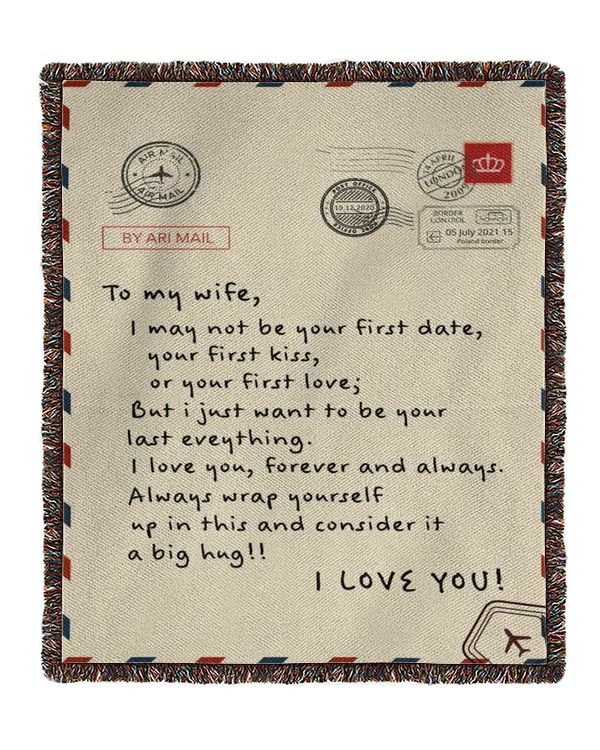 AIR MAIL
AIR MAIL
BY ARI MAIL
POST OFFICE
19.12.2020
POST OFFICE
14 APRIL
LONDON
2009
BORDER
CONTROL
05 July 2021 15
Poland border
To my wife,
I may not be your first date,
your first kiss,
or your first love;
But i just want to be your
last eveything.
I love you, forever and always.
Always wrap yourself
up in this and consider it
a big hug!!
I LOVE YOU!